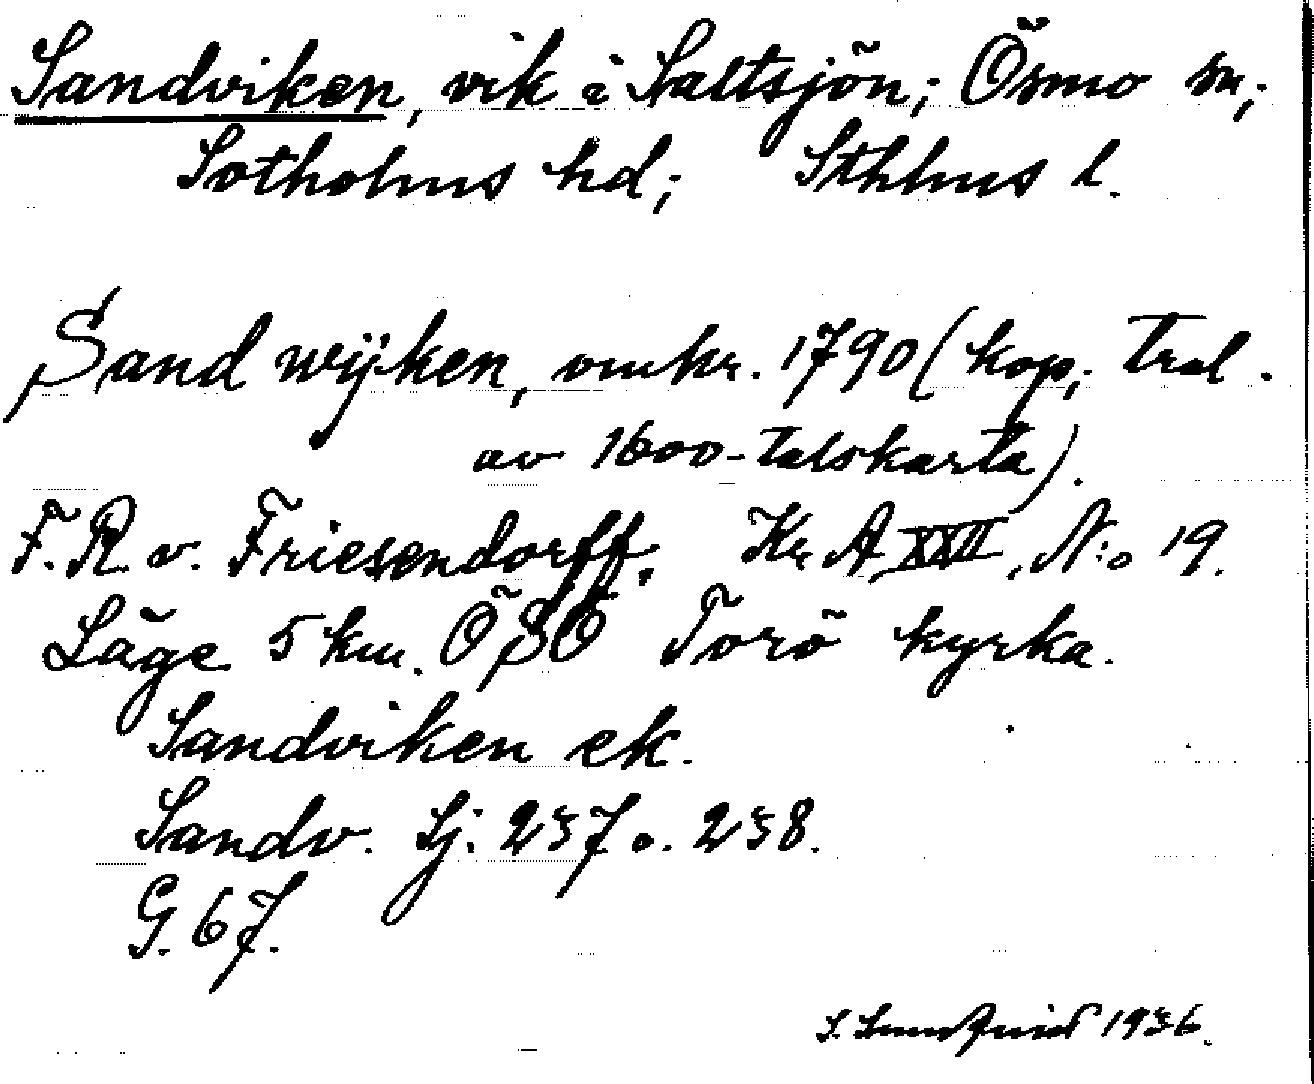 Sandviken, vik i Saltsjön; Ösmo sn;
Sotholms hd; Sthlms l.
Sand wÿken, omkr. 1790 (kop. trol.
av 1600-talskarta).
F. R. v. Friesendorff. Kr A XXII, N:o 19.
Läge 5 km. ÖSÖ Torö kyrka.
Sandviken ek.
Sandv. Sj. 237 o. 238.
G. 67.
1936.